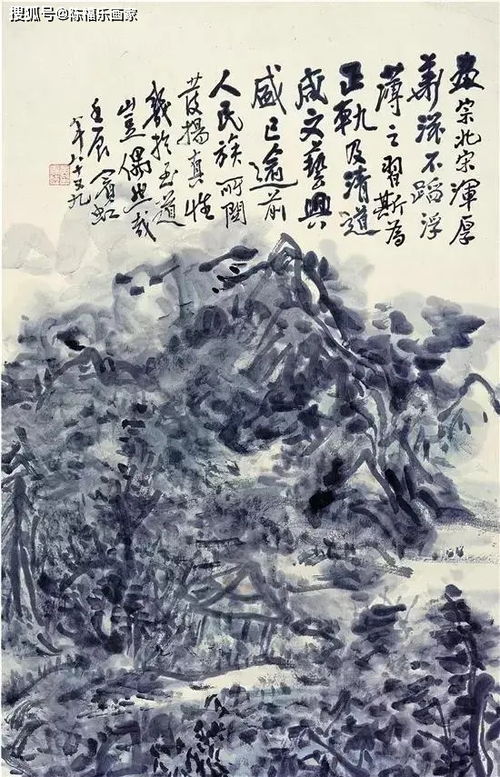 搜狐号@陈福乐画家
畫宗北宋渾厚
華滋不蹈浮
薄之習斯為
正軌及清道
咸文藝興
盛已逾前
人民族所關
發揚真性
幾於至道
豈偶然哉
壬辰賓虹
年八十又九